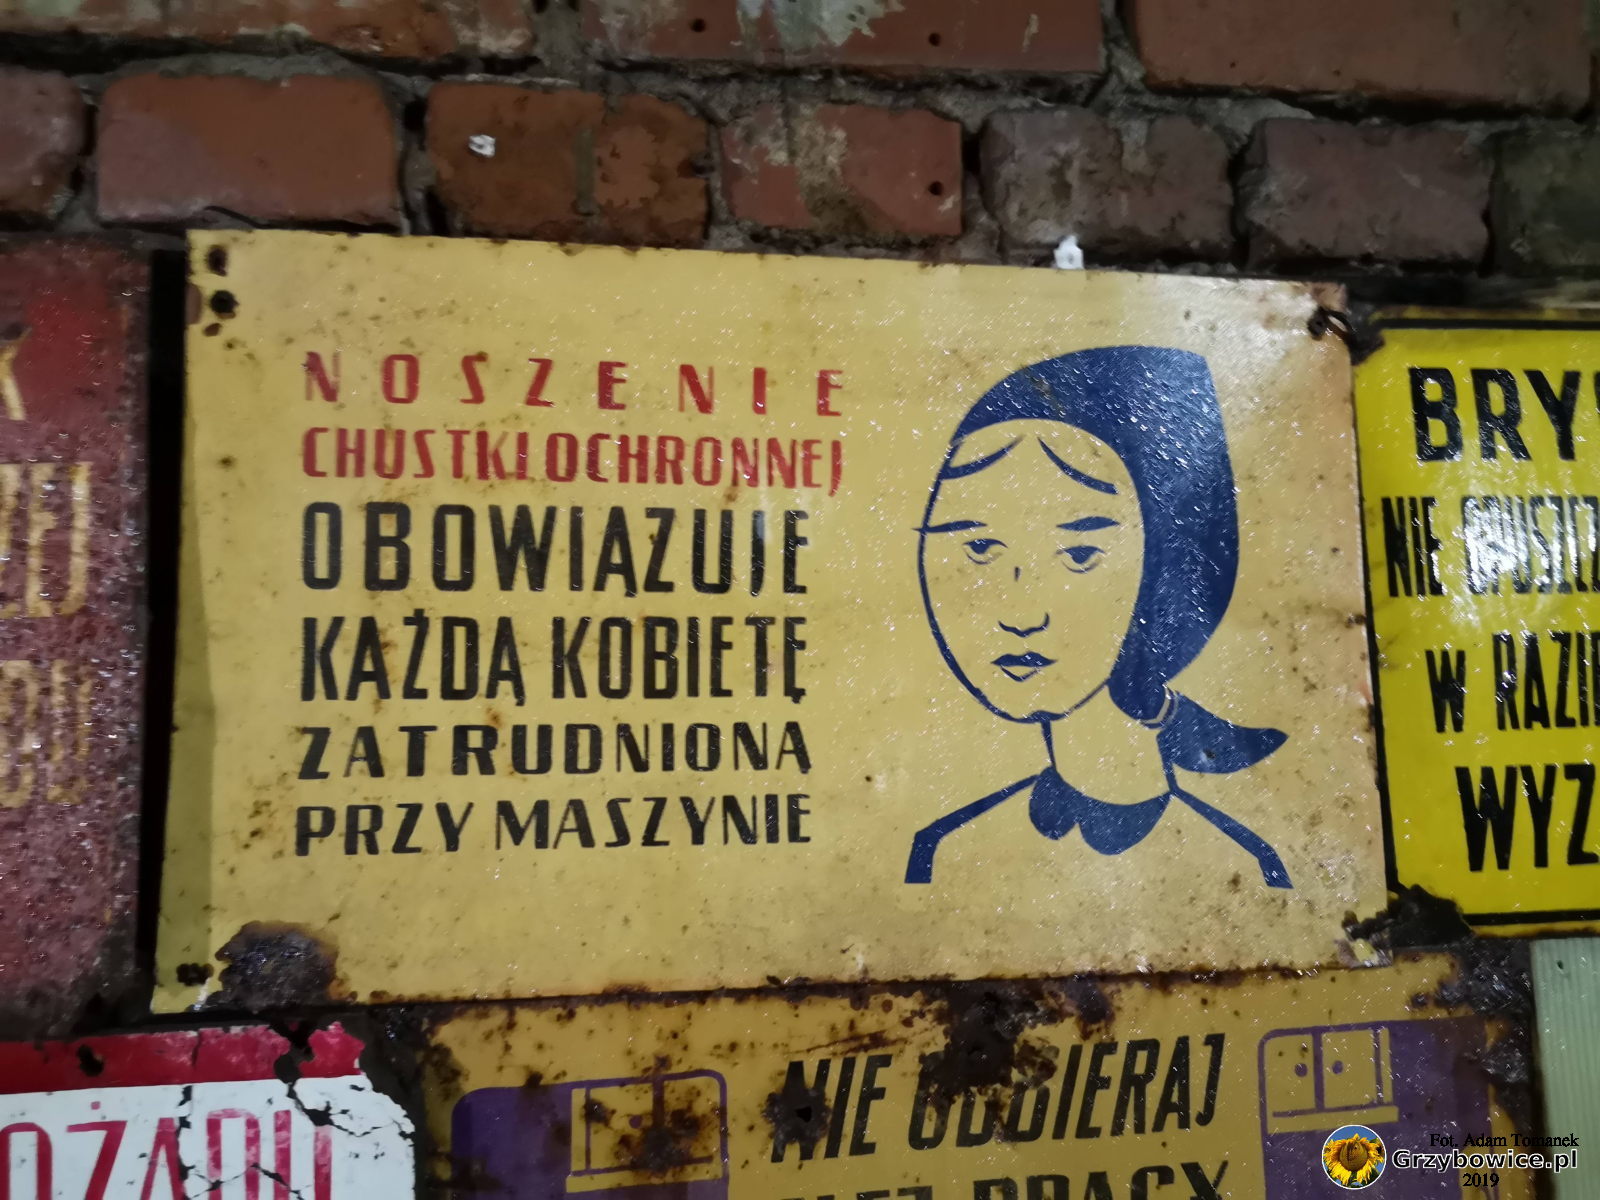 NOSZENIE
CHUSTKI OCHRONNEJ
OBOWIĄZUJE
KAŻDĄ KOBIETĘ
ZATRUDNIONĄ
PRZY MASZYNIE
BRY
NIE OPUSZCZ
W RAZIE
WYZ
NIE ODBIERAJ
Fot. Adam Tomanek
Grzybowice.pl
2019